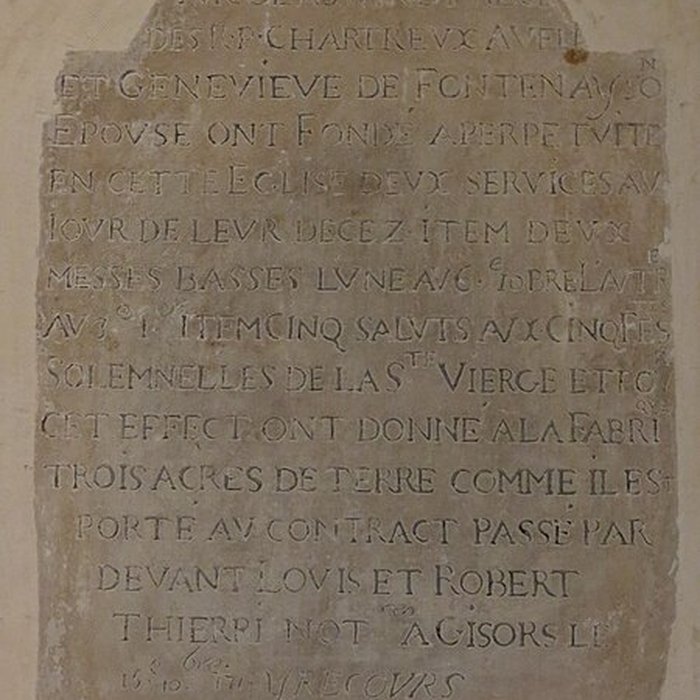 DES R·P·CHARTREVX AVEU
ET GENEVIEVE DE FONTENAY SON
EPOVSE ONT FONDÉ A PERPETVITE
EN CETTE EGLISE DEVX SERVICES AV
IOVR DE LEVR DECEZ·ITEM DEVX
MESSES BASSES LVNE AV 6·e 10BRE L'AUTRE
AV 3e ITEM CINQ SALVTS AVX CINQ FES
SOLEMNELLES DE LA STE VIERGE ET PO
CET EFFECT ONT DONNÉ A LA FABRI
TROIS ACRES DE TERRE COMME IL EST
PORTÉ AV CONTRACT PASSÉ PAR
DEVANT LOVIS ET ROBERT
THIERRI NOTres A GISORS LE
RECOVRS